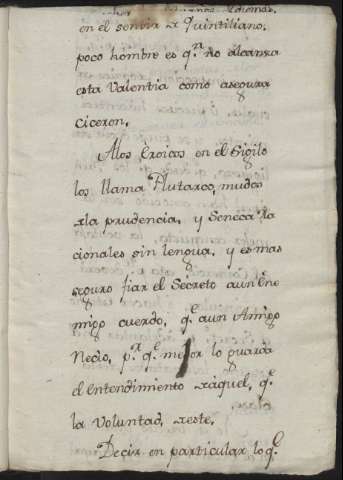 en el sentir de Quintiliano.
poco hombre es q.n no alcansa
esta Valentia como asegura
ciceron.
Alos Eroicos en el Sigilo
los llama Plutarco, mudos
dela prudencia, y Seneca, Ra
cionales sin lengua, y es mas
seguro fiar el Secreto aun Ene
migo cuerdo, q.e aun Amigo
Necio, p.r q.e mejor lo guarda
el Entendimiento deaquel, q.e
la Voluntad, deeste.
Decir en particular lo q.e